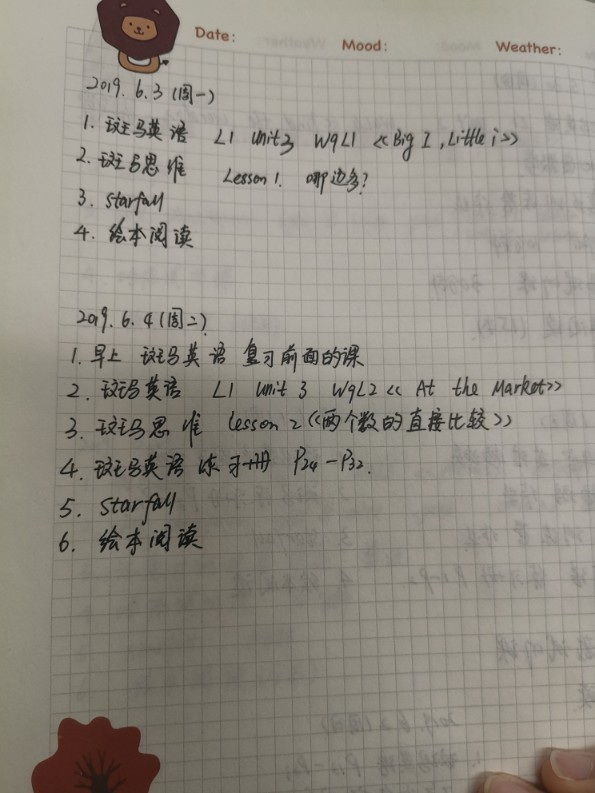 Date:
Mood:
Weather:
2019.6.3(周一)
1. 斑马英语 L1 Unit3 W9L1 <<Big I, Little i>>
2. 斑马思维 Lesson 1. 哪边多?
3. Starfall
4. 绘本阅读
2019.6.4(周二)
1. 早上 斑马英语 复习前面的课
2. 斑马英语 L1 Unit 3 W9L2 << At the Market>>
3. 斑马思维 lesson 2 <<两个数的直接比较>>
4. 斑马英语 练习册 P24-P32.
5. Starfall
6. 绘本阅读